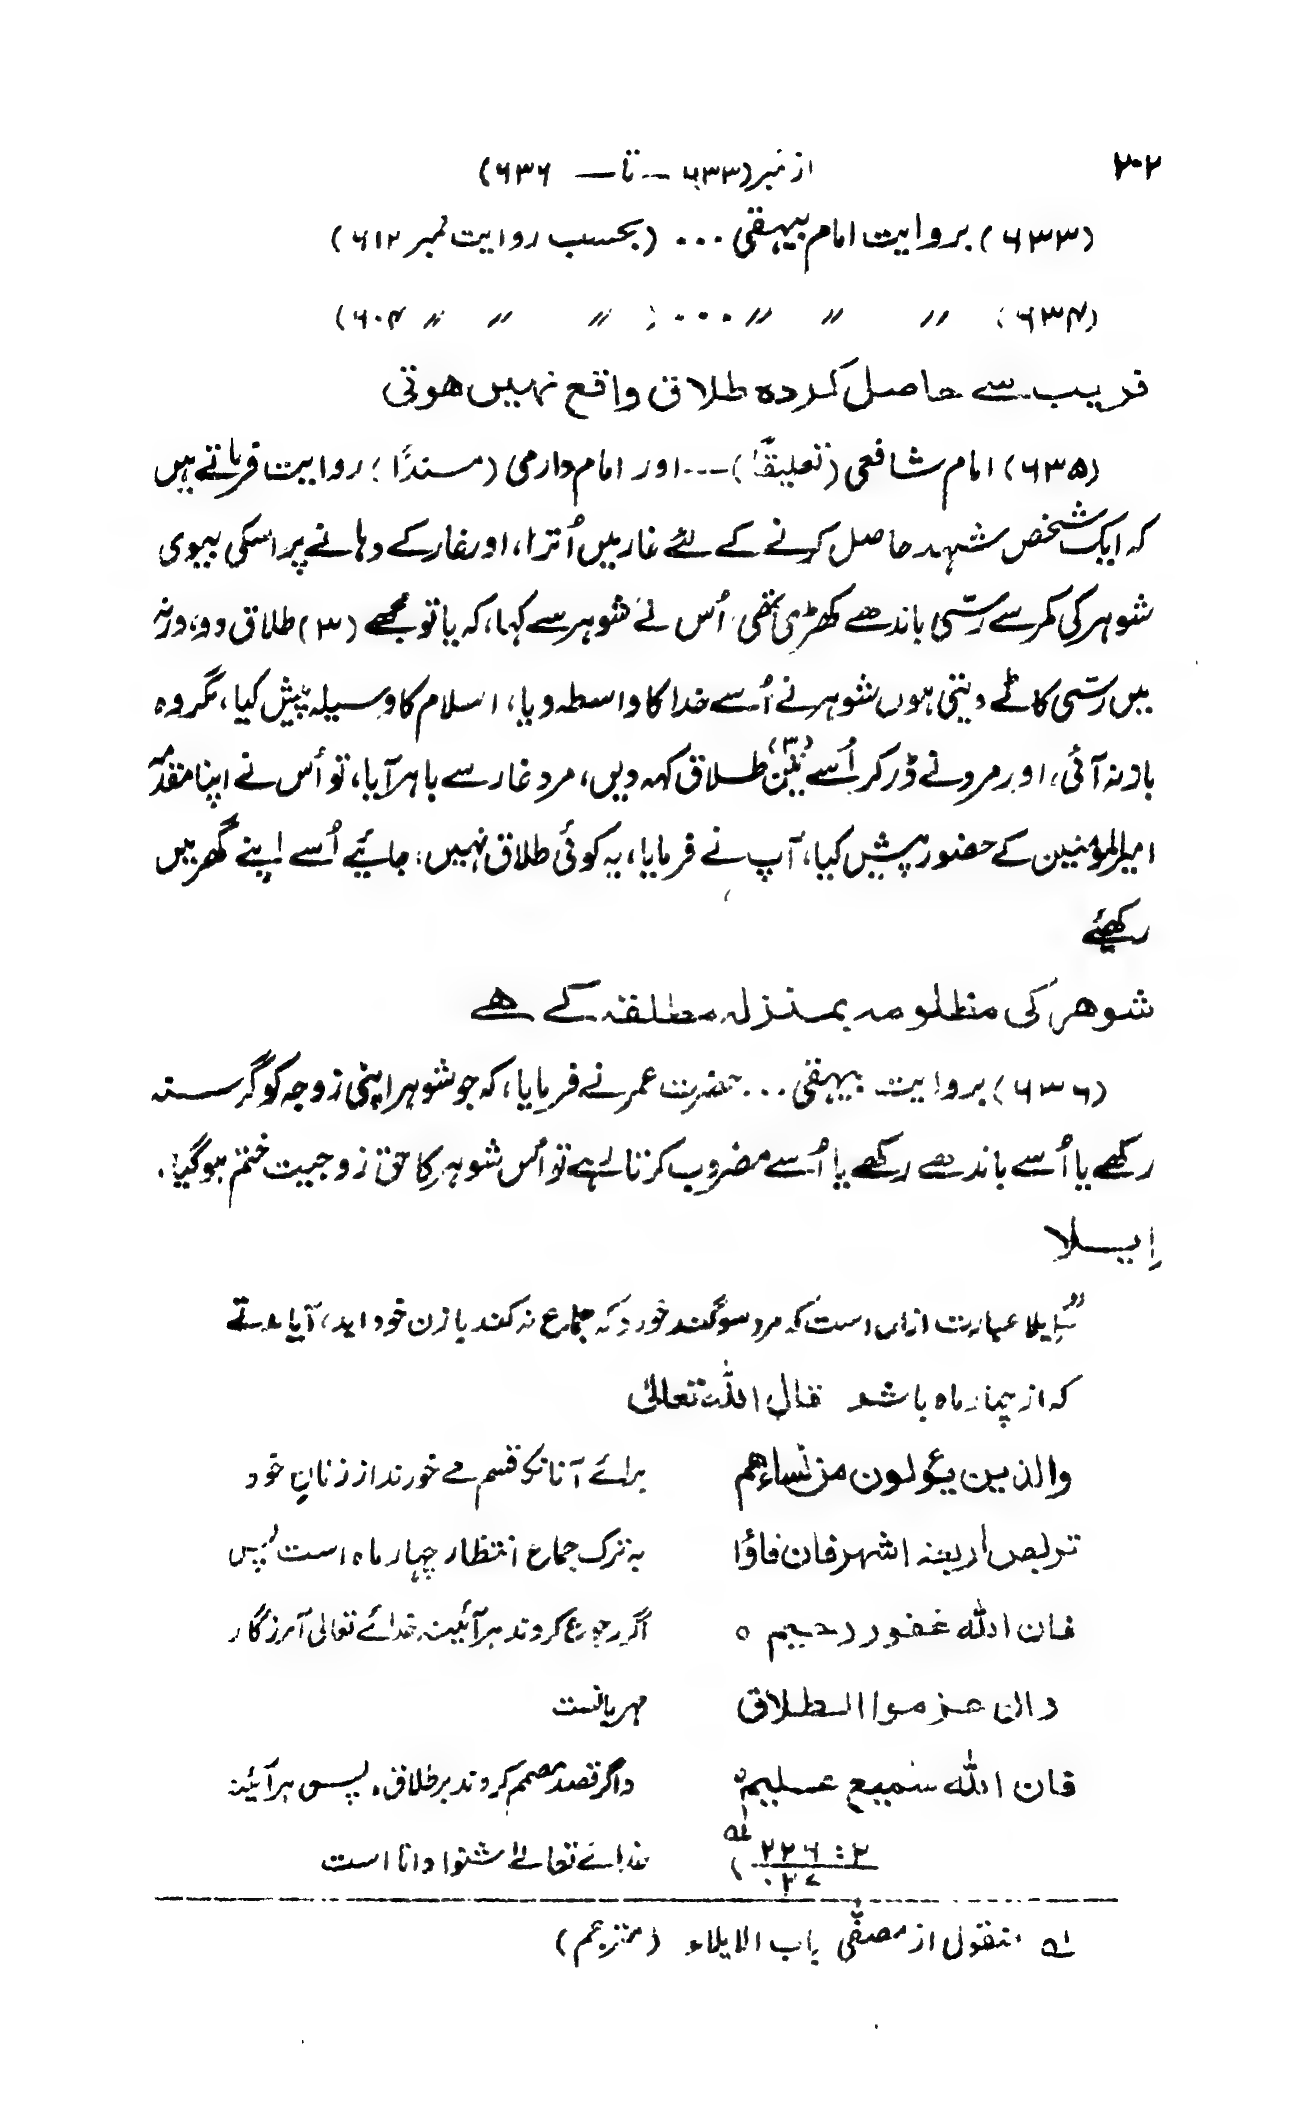 ۲۰۲
از نمبر (۶۳۳ -- تا — ۶۳۶)
(۶۳۳) بروایت امام بیہقی ... (بحسب روایت نمبر ۶۱۲)
(۶۳۴) 〃 〃 〃 ... : 〃 〃 〃 ۶۰۴)
فریب سے حاصل کردہ طلاق واقع نہیں ھوتی
(۶۳۵) امام شافعی (تعلیقاً) --- اور امام دارمی (مسنداً) روایت فرماتے ہیں
کہ ایک شخص شہد حاصل کرنے کے لئے غار میں اُترا، اور غار کے دہانے پر اسکی بیوی
شوہر کی کمر سے رسّی باندھے کھڑی تھی اُس نے شوہر سے کہا، کہ یا تو مجھے (۳) طلاق دو، ورنہ
میں رسّی کاٹے دیتی ہوں شوہر نے اُسے خدا کا واسطہ دیا، اسلام کا وسیلہ پیش کیا، مگر وہ
باز نہ آئی، اور مرد نے ڈر کر اُسے تین (۳) طلاق کہہ دیں، مرد غار سے باہر آیا، تو اُس نے اپنا مقدمہ
امیرالمؤمنین کے حضور پیش کیا، آپ نے فرمایا، یہ کوئی طلاق نہیں: جائیے اُسے اپنے گھر میں
رکھیئے
شوھر کی مظلومہ بمنزلہ مطلقہ کے ھے
(۶۳۶) بروایت بیہقی ... حضرت عمر نے فرمایا، کہ جو شوہر اپنی زوجہ کو گرسنہ
رکھے یا اُسے باندھے رکھے یا اُسے مضروب کرتا رہے تو اُس شوہر کا حق زوجیت ختم ہو گیا.
اِیلا
"ایلا عبارت ازاں است کہ مرد سوگند خورد کہ جماع نہ کند با زن خود ابد، آیا مدتے
کہ از چہار ماہ باشد قال اللہ تعالیٰ
والذین یؤلون من نساءھم برائے آنانکہ قسم مے خورند از زنانِ خود
تربص اربعۃ اشھر فان فاؤا بہ ترک جماع انتظار چہار ماہ است پس
فان اللہ غفور رحیم ○ اگر رجوع کردند ہر آئینہ خدائے تعالیٰ آمرزگار
وان عزموا الطلاق مہربانست
فان اللہ سمیع علیم○ و اگر قصد مصمم کردند بر طلاق، پس ہر آئینہ
۲: ۲۲۶ لہ خدائے تعالےٰ شنوا دانا است
لہ منقول از مصفّی باب الایلاء (مترجم)